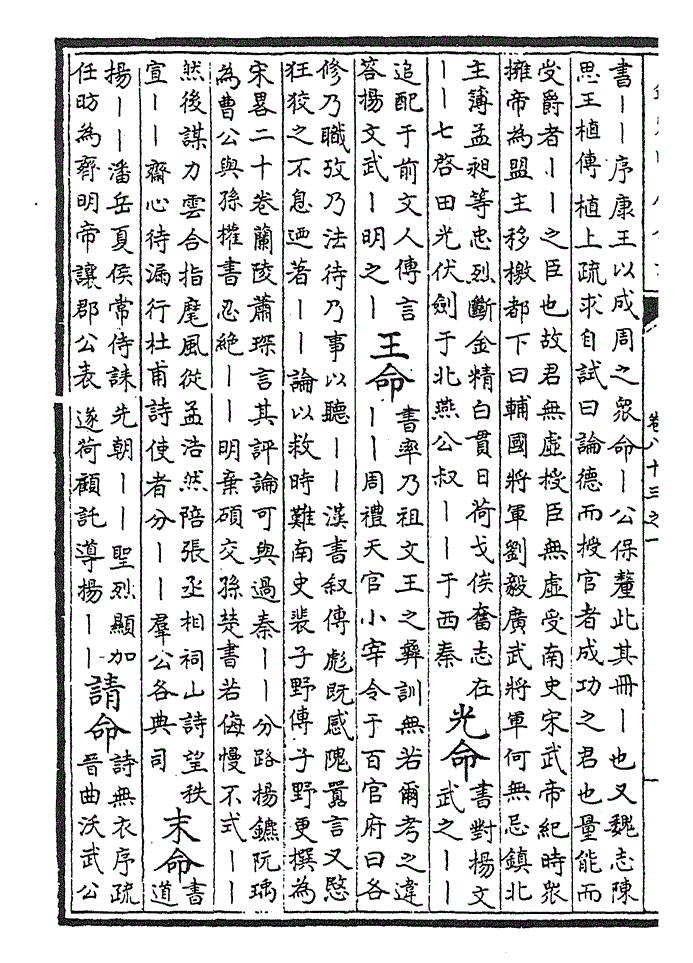 卷八十三之一
書——序康王以成周之衆命—公保釐此其冊—也又魏志陳
思王植傳植上疏求自試曰論德而授官者成功之君也量能而
受爵者——之臣也故君無虛授臣無虛受南史宋武帝紀時衆
擁帝為盟主移檄都下曰輔國將軍劉毅廣武將軍何無忌鎮北
主簿孟昶等忠烈斷金精白貫日荷戈俟奮志在
——七啓田光伏劍于北燕公叔——于西秦
光命
書對揚文
武之——
追配于前文人傳言
答揚文武—明之—
王命
書率乃祖文王之彝訓無若爾考之違
——周禮天官小宰令于百官府曰各
修乃職攷乃法待乃事以聽——漢書叙傳彪既感隗囂言又愍
狂狡之不息迺著——論以救時難南史裴子野傳子野更撰為
宋畧二十卷蘭陵蕭琛言其評論可與過秦——分路揚鑣阮瑀
為曹公與孫權書忍絶——明棄碩交孫楚書若侮慢不式——
然後謀力雲合指麾風從孟浩然陪張丞相祠山詩望秩
宣——齋心待漏行杜甫詩使者分——羣公各典司
末命
書
道
揚——潘岳夏侯常侍誄先朝——聖烈顯加
任昉為齊明帝讓郡公表遂荷顧託導揚——
請命
詩無衣序疏
晉曲沃武公